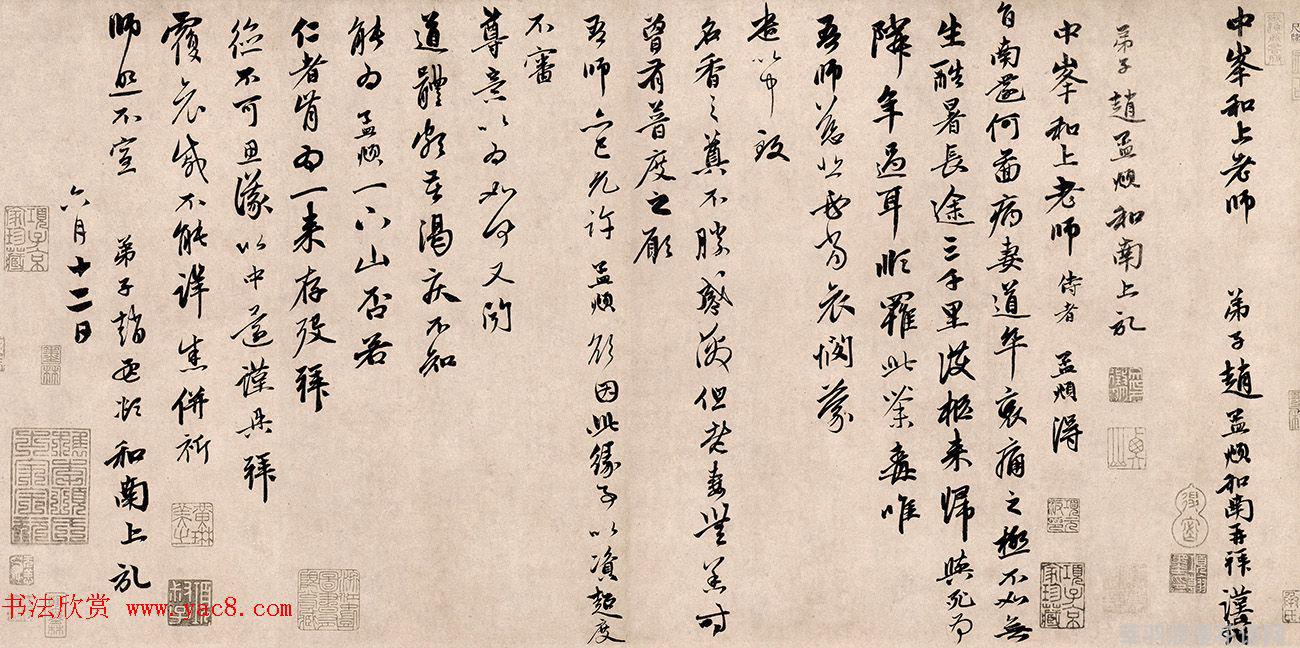 中峯和上老師 弟子趙孟頫和南再拜謹封
弟子趙孟頫和南上記
中峯和上老師侍者孟頫得
旨南還何啚病妻道卒哀痛之極不如無
生酷暑長途三千里護柩來歸與死為
隣年過耳順罹此荼毒唯
吾師慈悲必當哀憫蒙
遣以中致
名香之奠不勝感激但老妻無恙時
曾有普度之願
吾師亦已允許孟頫欲因此緣事以資超度
不審
尊意以為如何又聞
道體頗苦渴疾不知
能為孟頫一下山否若
仁者肯為一來存歿拜
德不可思議以中還謹具拜
覆哀感不能詳悉併祈
師照不宣 弟子趙孟頫和南上記
六月十二日
书法欣赏 www.yac8.com